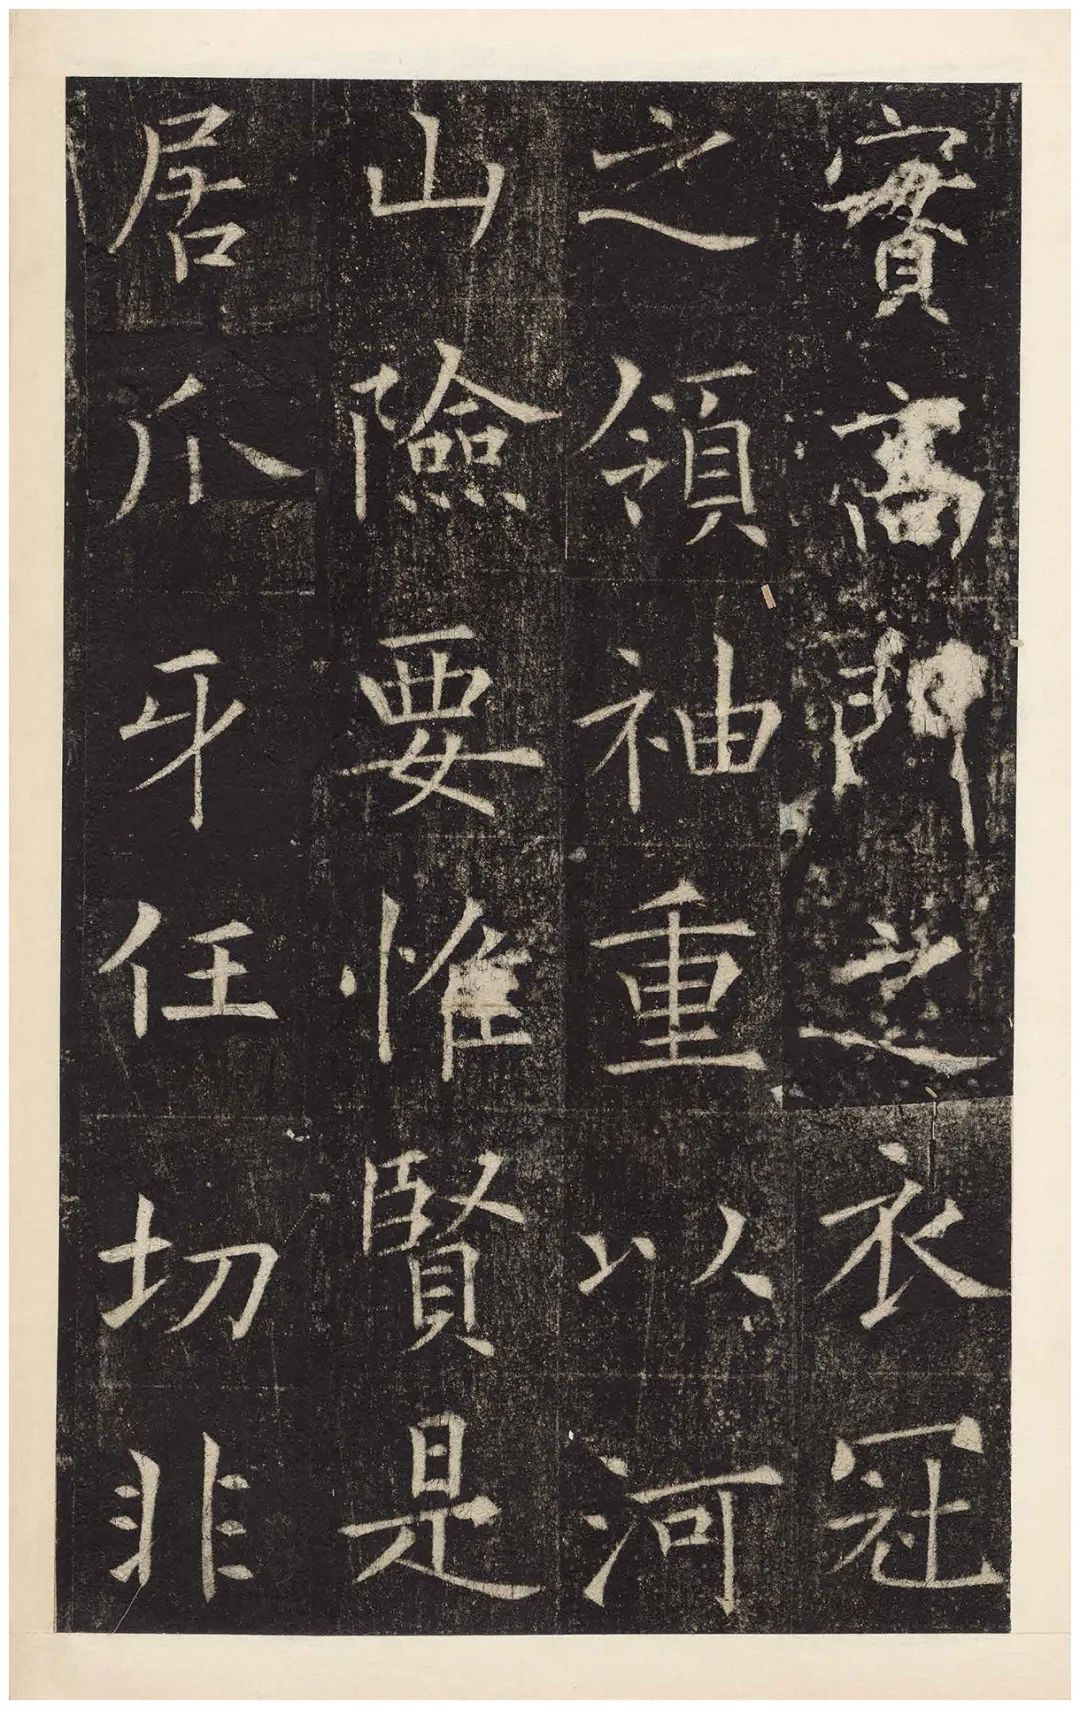 實高門之衣冠
之領袖重以河
山險要惟賢是
居爪牙任切非